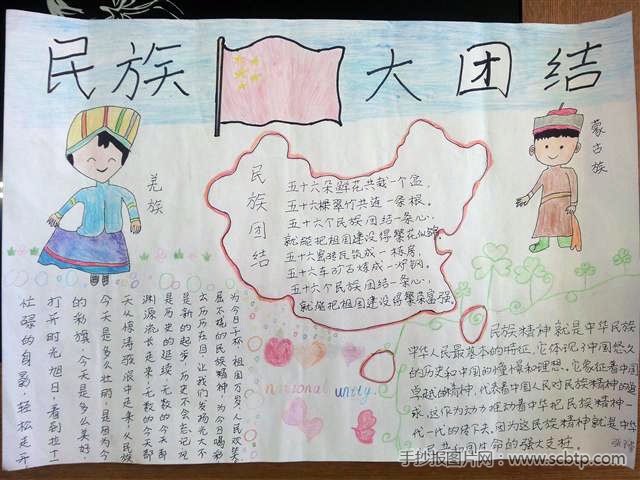 民族大团结
羌族
蒙古族
民族团结
五十六朵鲜花共栽一个盆,
五十六棵翠竹共连一条根。
五十六个民族团结一条心,
就能把祖国建设得繁花似锦。
五十六个民族团结一条心,
就能把祖国建设得繁荣富强
为今日干杯,祖国万岁人民欢笑,
屈不挠的民族精神,为今日喝彩
去历历在目,让我们发扬光大不
是新的起步,历史不会忘记,
是历史的延续,无数的今天即
渊源流长走来,无数的今天即
天从惊涛骇浪中走来,从民族
今天是多么壮丽,是因为今
的彩旗,今天是多么美好,
打开时光旭日,看到
忙碌的身影,轻松走开
national unity.
民族精神就是中华民族
中华人民最基本的特征,它体现了中国悠久
的历史和中国的憧憬和理想。它象征着中国
卓越的精神,代表着中国人民对民族精神的追
求,这作为动力推动着中华把民族精神一
代一代的传下去。因为这民族精神就是中华
民共和国生命的强大支柱。
手抄报图片网:www.scbtp.com